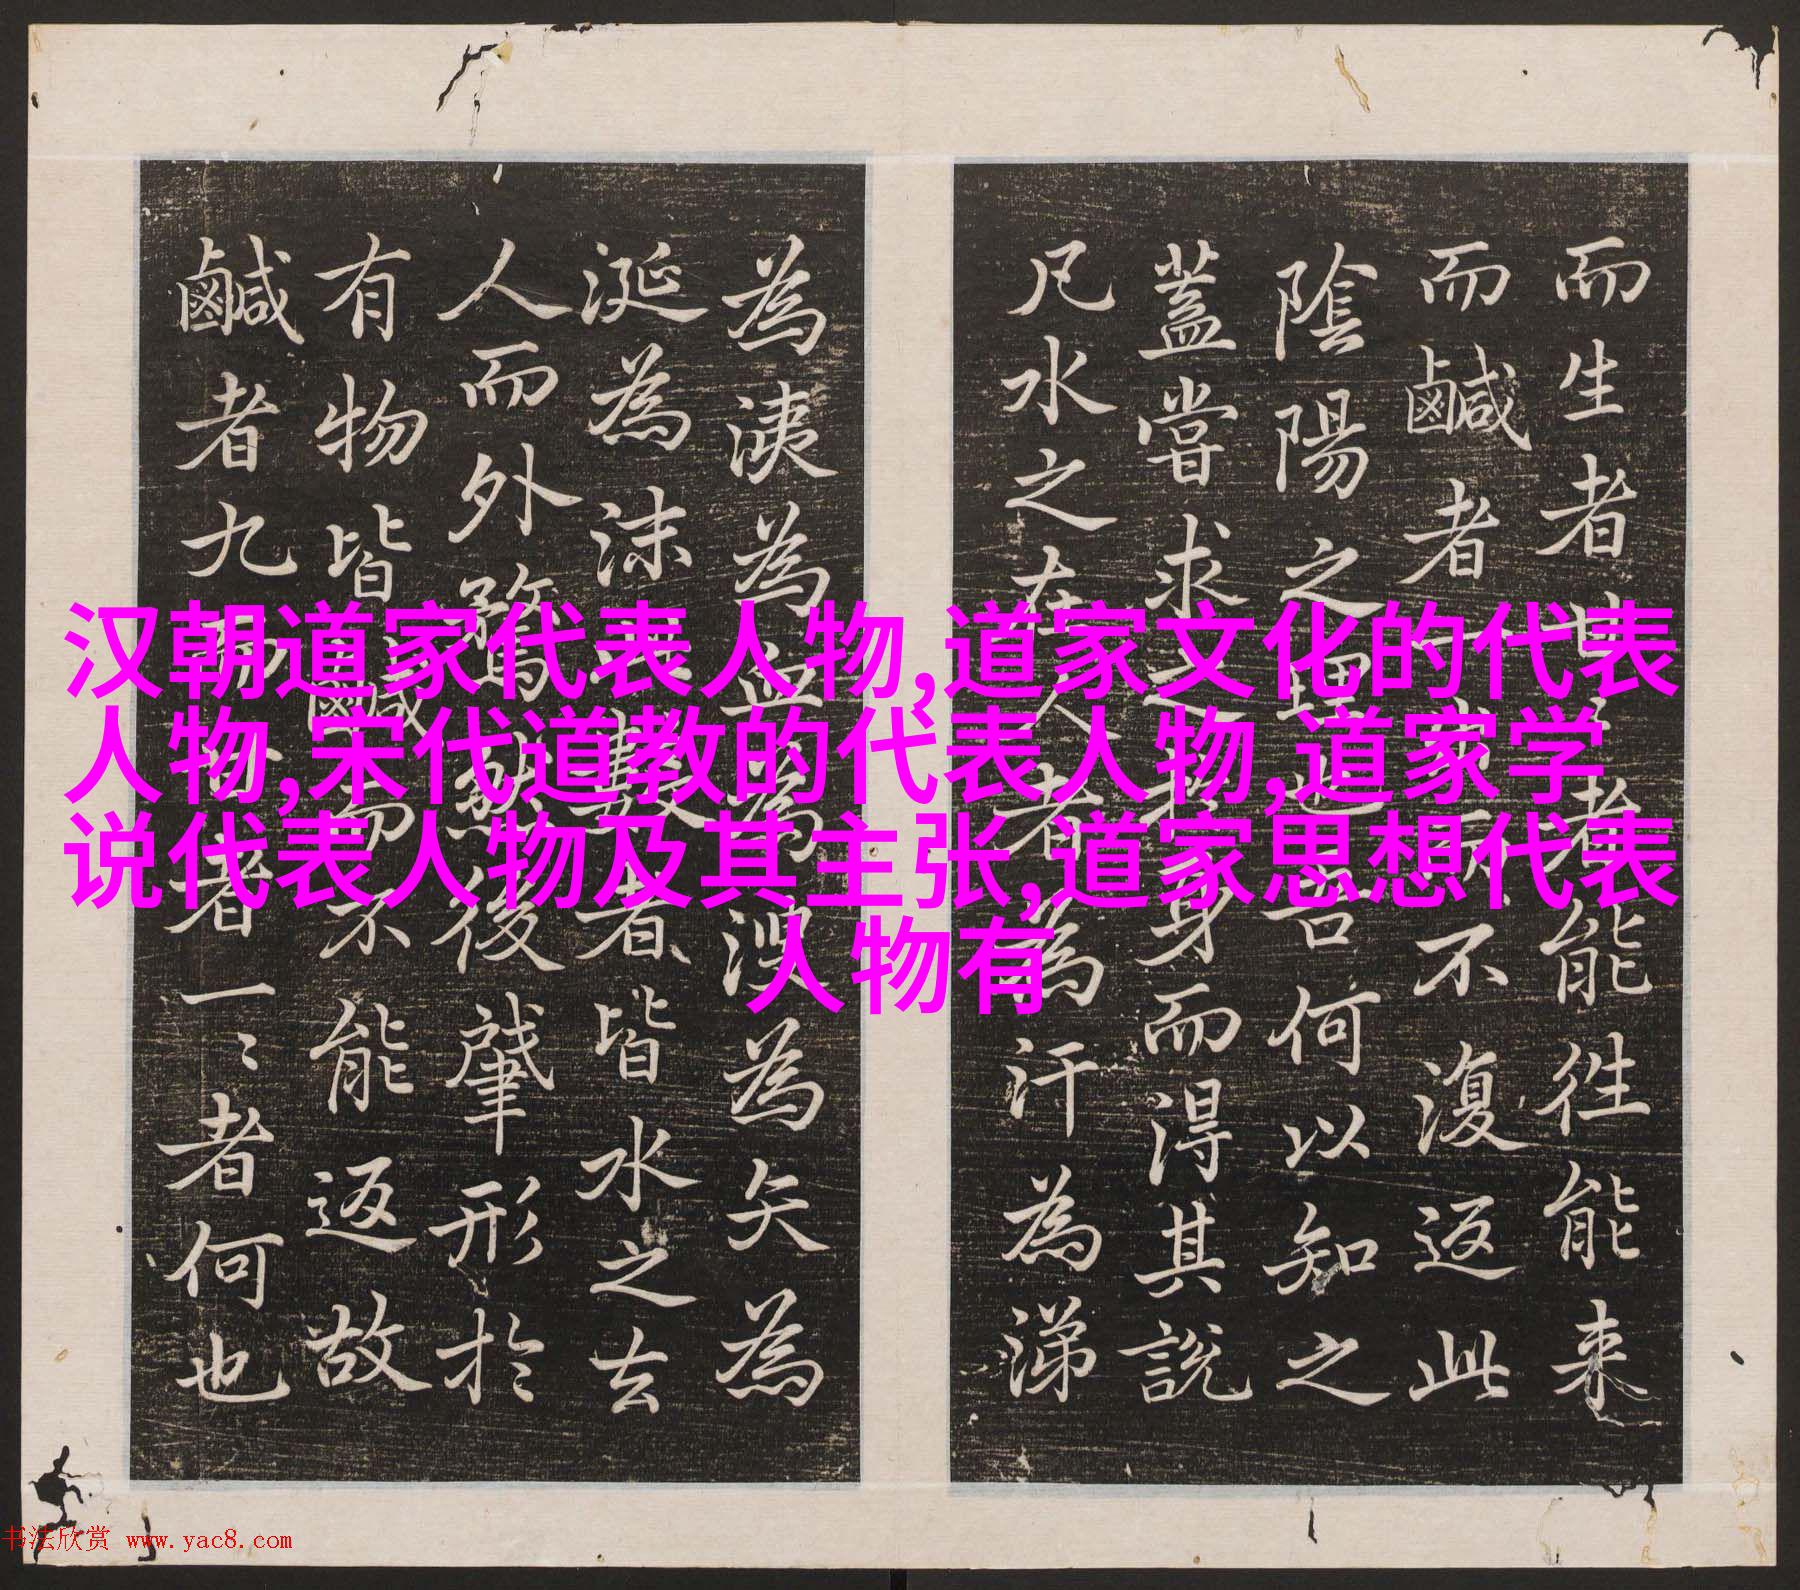 汉朝道家代表人物,道家文化的代表
人物,宋代道教的代表人物,道家学
说代表人物及其主张,道家思想代表
人物有
而生者者能徃能来
而鹹者不復返此
陰陽之理也何以知之
蓋嘗求之身而得其說
凡水之在人者為汗為涕
為洟為血為溲為矢為
涎為沫數者皆水之去
人而外騖然後肇形於
有物皆鹹而不能返故
鹹者九者一〻者何也
书法欣赏 www.yac8.com